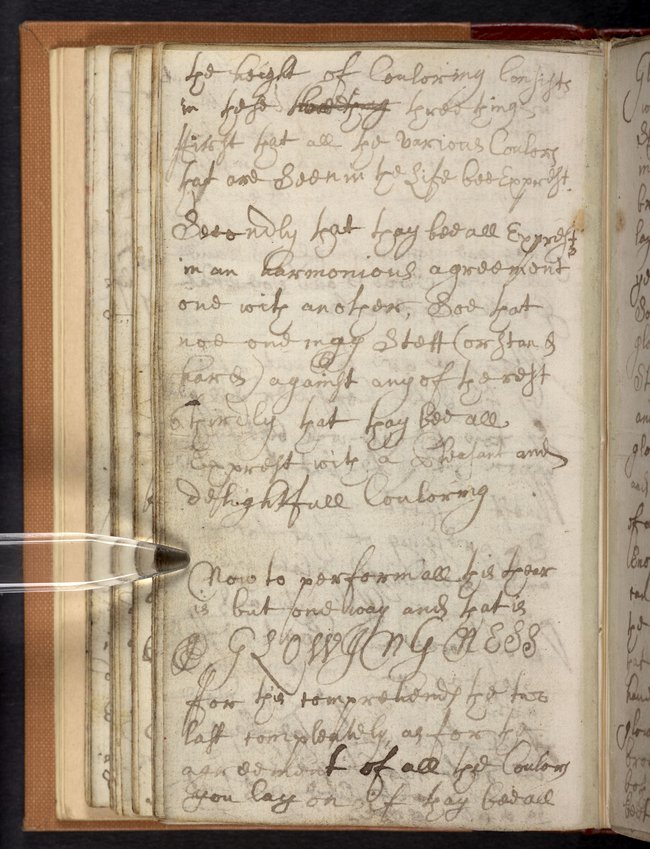 the height of Couloring Consists
in these three things
ffirst that all the various Coulors
that are Seen in the Life bee Exprest.
Secondly that thay bee all Exprest
in an harmonious agreement
one with another, Soe that
noe one ingg Stett (or Stand
hard) against any of the rest
thirdly that thay bee all
Exprest with a Pleasant and
delightfull Couloring
Now to perform all this thear
is but one way and that is
GLOWINGNESS
for this comprehends the two
last compleately, as for the
agreement of all the Coulors
you lay on If thay bee all